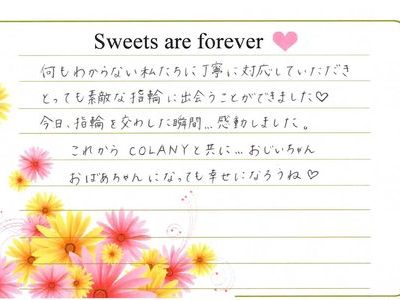 Sweets are forever
何もわからない私たちに丁寧に対応していただき
とっても素敵な指輪に出会うことができました♡
今日、指輪を交わした瞬間…感動しました。
これから COLANYと共に…おじいちゃん
おばあちゃんになっても幸せになろうね♡